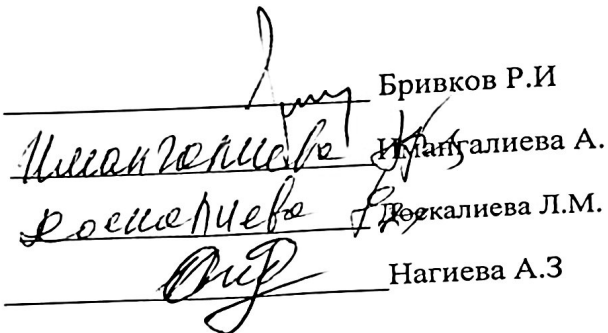 Бривков Р.И
Имангалиева Имангалиева А.
Доскалиева Доскалиева Л.М.
Нагиева А.З